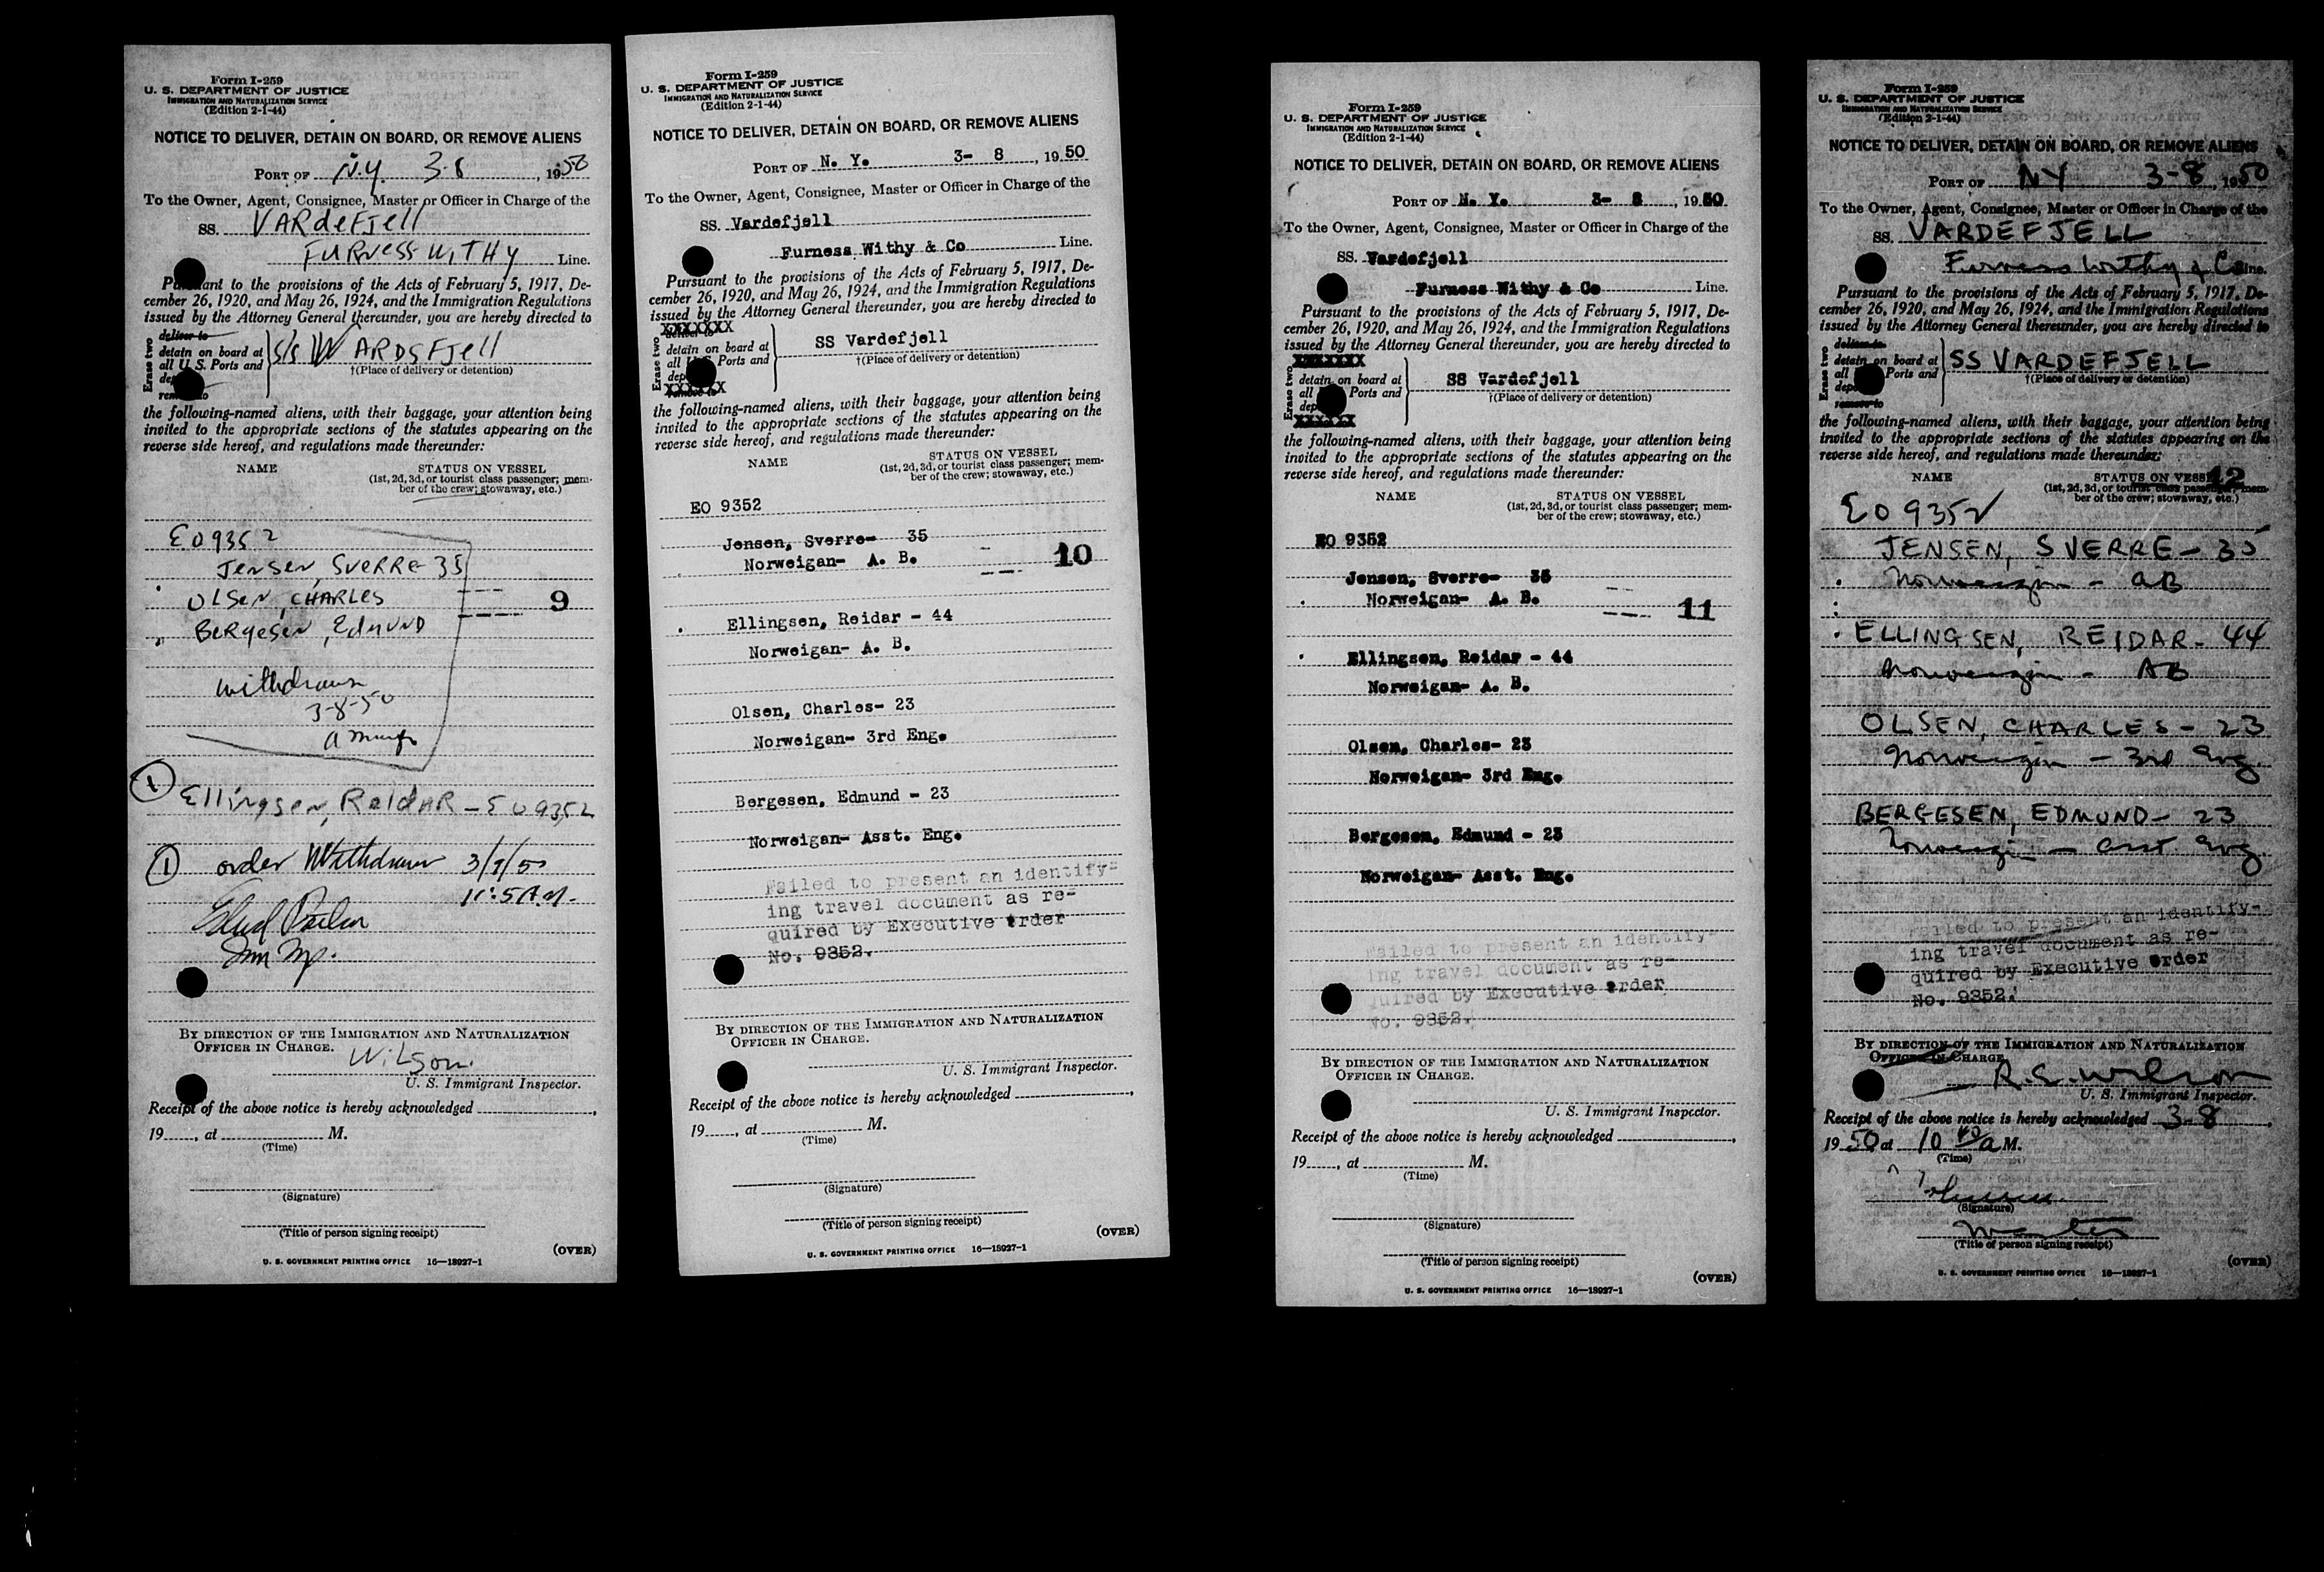 Form I-259
U. S. DEPARTMENT OF JUSTICE
IMMIGRATION AND NATURALIZATION SERVICE
(Edition 2-1-44)
NOTICE TO DELIVER, DETAIN ON BOARD, OR REMOVE ALIENS
PORT OF N.Y. 3-8, 1950
To the Owner, Agent, Consignee, Master or Officer in Charge of the
SS. VARdeFJell
FURNESS WITHY Line.
Pursuant to the provisions of the Acts of February 5, 1917, De-
cember 26, 1920, and May 26, 1924, and the Immigration Regulations
issued by the Attorney General thereunder, you are hereby directed to
Erase two
deliver to
detain on board at
all U. S. Ports and
dep
remove to
S/S VARDSFJell
†(Place of delivery or detention)
the following-named aliens, with their baggage, your attention being
invited to the appropriate sections of the statutes appearing on the
reverse side hereof, and regulations made thereunder:
NAME STATUS ON VESSEL
(1st, 2d, 3d, or tourist class passenger; mem-
ber of the crew; stowaway, etc.)
EO 9352
Jensen, SVERRE 35
OLSEN, CHARLES 9
BERgeSeN, EdmUND
withdrawn
3-8-50
1 Ellingsen, ReidAR - EO 9352
1 order Withdrawn
BY DIRECTION OF THE IMMIGRATION AND NATURALIZATION
OFFICER IN CHARGE.
WiLSon
U. S. Immigrant Inspector.
Receipt of the above notice is hereby acknowledged
19, at M.
(Time)
(Signature)
(Title of person signing receipt)
(OVER)
U. S. GOVERNMENT PRINTING OFFICE 16—18927-1
Form I-259
U. S. DEPARTMENT OF JUSTICE
IMMIGRATION AND NATURALIZATION SERVICE
(Edition 2-1-44)
NOTICE TO DELIVER, DETAIN ON BOARD, OR REMOVE ALIENS
PORT OF N. Y. 3- 8, 1950
To the Owner, Agent, Consignee, Master or Officer in Charge of the
SS. Vardefjell
Furness Withy & Co Line.
Pursuant to the provisions of the Acts of February 5, 1917, De-
cember 26, 1920, and May 26, 1924, and the Immigration Regulations
issued by the Attorney General thereunder, you are hereby directed to
XXXXXXX
Erase two
detain on board at
all U. S. Ports and
dep
XXXXXX
SS Vardefjell
†(Place of delivery or detention)
the following-named aliens, with their baggage, your attention being
invited to the appropriate sections of the statutes appearing on the
reverse side hereof, and regulations made thereunder:
NAME STATUS ON VESSEL
(1st, 2d, 3d, or tourist class passenger; mem-
ber of the crew; stowaway, etc.)
EO 9352
Jensen, Sverre- 35
Norweigan- A. B. 10
Ellingsen, Reidar - 44
Norweigan- A. B.
Olsen, Charles- 23
Norweigan- 3rd Eng.
Bergesen, Edmund - 23
Norweigan- Asst. Eng.
Failed to present an identify-
ing travel document as re-
quired by Executive Order
No. 9352.
BY DIRECTION OF THE IMMIGRATION AND NATURALIZATION
OFFICER IN CHARGE.
U. S. Immigrant Inspector.
Receipt of the above notice is hereby acknowledged
19, at M.
(Time)
(Signature)
(Title of person signing receipt)
(OVER)
U. S. GOVERNMENT PRINTING OFFICE 16—18927-1
Form I-259
U. S. DEPARTMENT OF JUSTICE
IMMIGRATION AND NATURALIZATION SERVICE
(Edition 2-1-44)
NOTICE TO DELIVER, DETAIN ON BOARD, OR REMOVE ALIENS
PORT OF N. Y. 3- 8, 1950
To the Owner, Agent, Consignee, Master or Officer in Charge of the
SS. Vardefjell
Furness Withy & Co Line.
Pursuant to the provisions of the Acts of February 5, 1917, De-
cember 26, 1920, and May 26, 1924, and the Immigration Regulations
issued by the Attorney General thereunder, you are hereby directed to
XXXXXXX
Erase two
detain on board at
all Ports and
dep
XXXXXX
SS Vardefjell
†(Place of delivery or detention)
the following-named aliens, with their baggage, your attention being
invited to the appropriate sections of the statutes appearing on the
reverse side hereof, and regulations made thereunder:
NAME STATUS ON VESSEL
(1st, 2d, 3d, or tourist class passenger; mem-
ber of the crew; stowaway, etc.)
EO 9352
Jensen, Sverre- 35
Norweigan- A. B. 11
Ellingsen, Reidar - 44
Norweigan- A. B.
Olsen, Charles- 23
Norweigan- 3rd Eng.
Bergesen, Edmund - 23
Norweigan- Asst. Eng.
Failed to present an identify-
ing travel document as re-
quired by Executive Order
No. 9352.
BY DIRECTION OF THE IMMIGRATION AND NATURALIZATION
OFFICER IN CHARGE.
U. S. Immigrant Inspector.
Receipt of the above notice is hereby acknowledged
19, at M.
(Time)
(Signature)
(Title of person signing receipt)
(OVER)
U. S. GOVERNMENT PRINTING OFFICE 16—18927-1
Form I-259
U. S. DEPARTMENT OF JUSTICE
IMMIGRATION AND NATURALIZATION SERVICE
(Edition 2-1-44)
NOTICE TO DELIVER, DETAIN ON BOARD, OR REMOVE ALIENS
PORT OF NY 3-8, 1950
To the Owner, Agent, Consignee, Master or Officer in Charge of the
SS. VARDEFJELL
Furness Withy & Co Line.
Pursuant to the provisions of the Acts of February 5, 1917, De-
cember 26, 1920, and May 26, 1924, and the Immigration Regulations
issued by the Attorney General thereunder, you are hereby directed to
Erase two
deliver to
detain on board at
all Ports and
dep
remove to
SS VARDEFJELL
†(Place of delivery or detention)
the following-named aliens, with their baggage, your attention being
invited to the appropriate sections of the statutes appearing on the
reverse side hereof, and regulations made thereunder:
NAME STATUS ON VESSEL 12
(1st, 2d, 3d, or tourist class passenger; mem-
ber of the crew; stowaway, etc.)
EO 9352
JENSEN, SVERRE - 35
Norwegian - AB
ELLINGSEN, REIDAR - 44
Norwegian - AB
OLSEN, CHARLES - 23
Norwegian - 3rd Eng.
BERGESEN, EDMUND - 23
Norwegian - Asst Eng.
Failed to present an identify-
ing travel document as re-
quired by Executive Order
No. 9352.
BY DIRECTION OF THE IMMIGRATION AND NATURALIZATION
OFFICER IN CHARGE.
R.C. Wilson
U. S. Immigrant Inspector.
Receipt of the above notice is hereby acknowledged 3-8,
1950 at 10 40 a M.
(Time)
(Signature)
Master
(Title of person signing receipt)
(OVER)
U. S. GOVERNMENT PRINTING OFFICE 16—18927-1